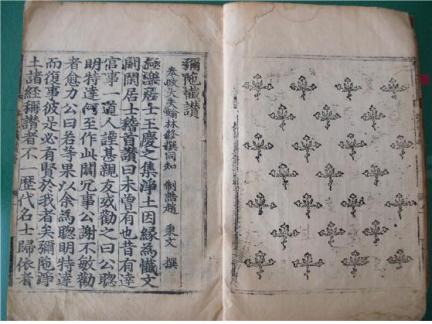 彌陀懺讃
奉政大夫翰林修撰同知 制誥趙 秉文 撰
極樂居士王慶之集淨土因縁爲懺文
閑閑居士稽首讃曰未曾有也昔有達
官事一道人謹甚親友或勸之曰公聡
明特達何至作此閑冗事公謝不敏勸
者愈力公曰若等果以余爲聰明特達
而復事彼是必有賢於我者矣彌陁淨
土諸經稱讃者不一歷代名士歸依者